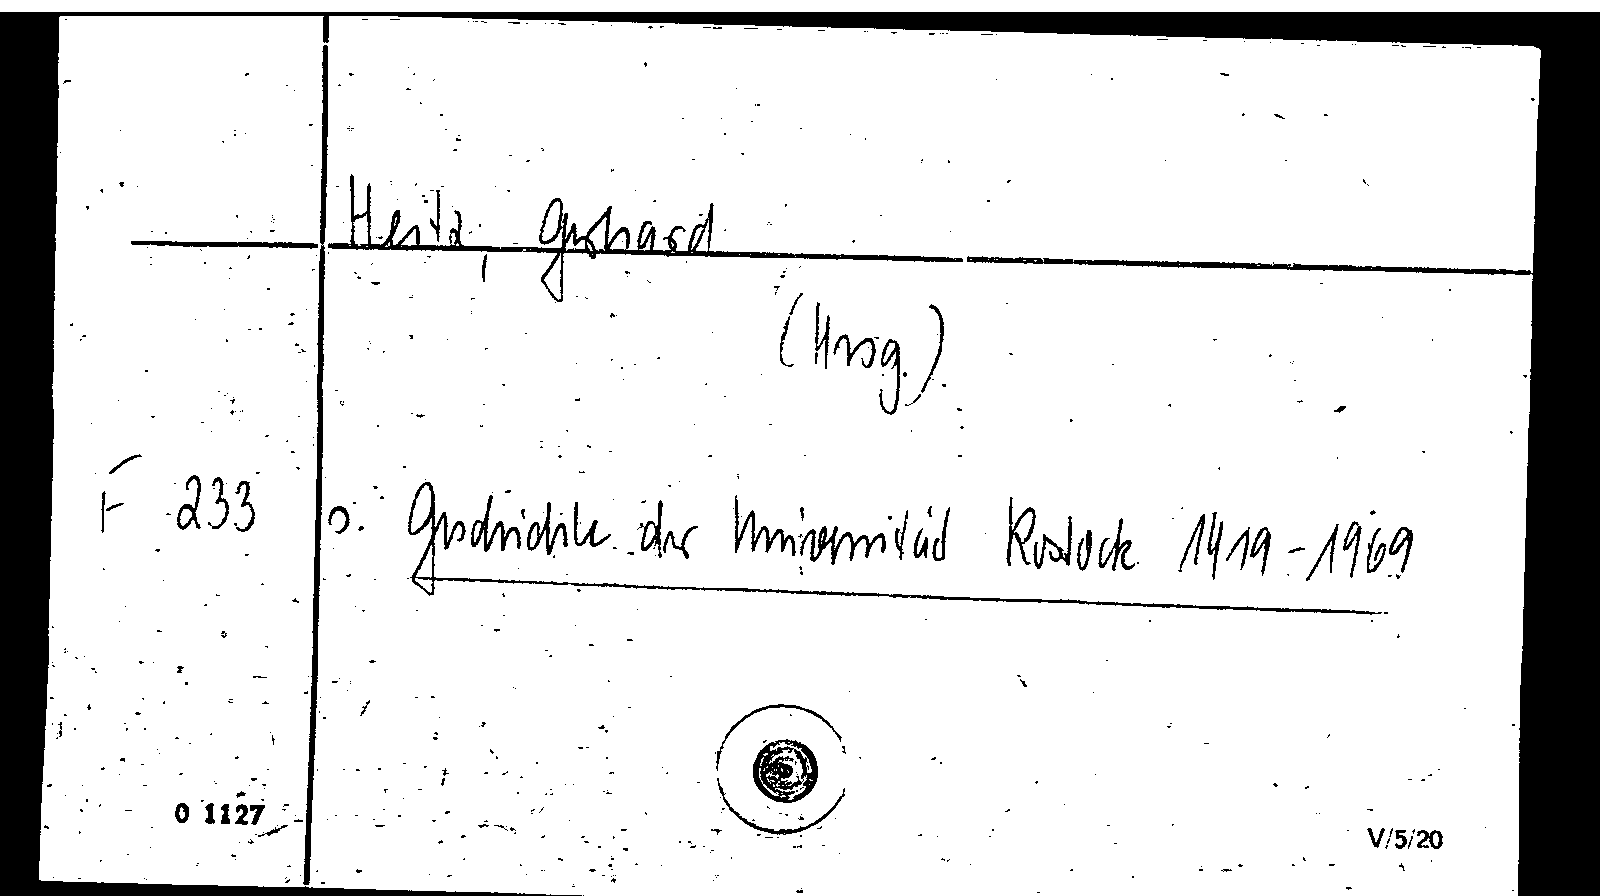 Heitz, Gerhard
(Hrsg.)
F 233 s. Geschichte der Universität Rostock 1419-1969
0 1127
V/5/20